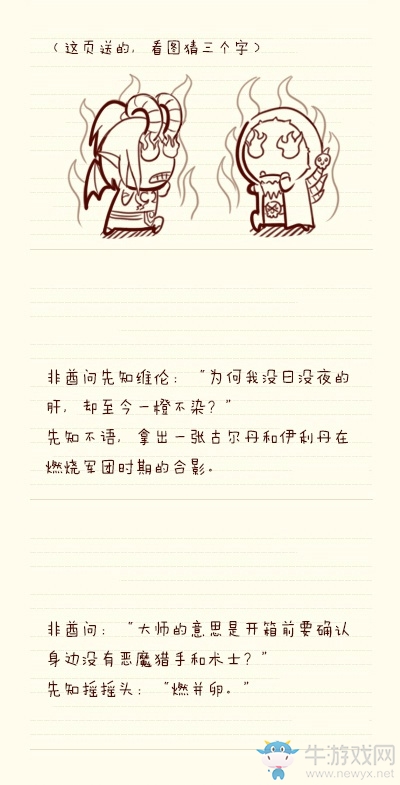 （这页送的，看图猜三个字）
非酋问先知维伦：“为何我没日没夜的
肝，却至今一橙不染？”
先知不语，拿出一张古尔丹和伊利丹在
燃烧军团时期的合影。
非酋问：“大师的意思是开箱前要确认
身边没有恶魔猎手和术士？”
先知摇摇头：“燃并卵。”
牛游戏网
www.newyx.net